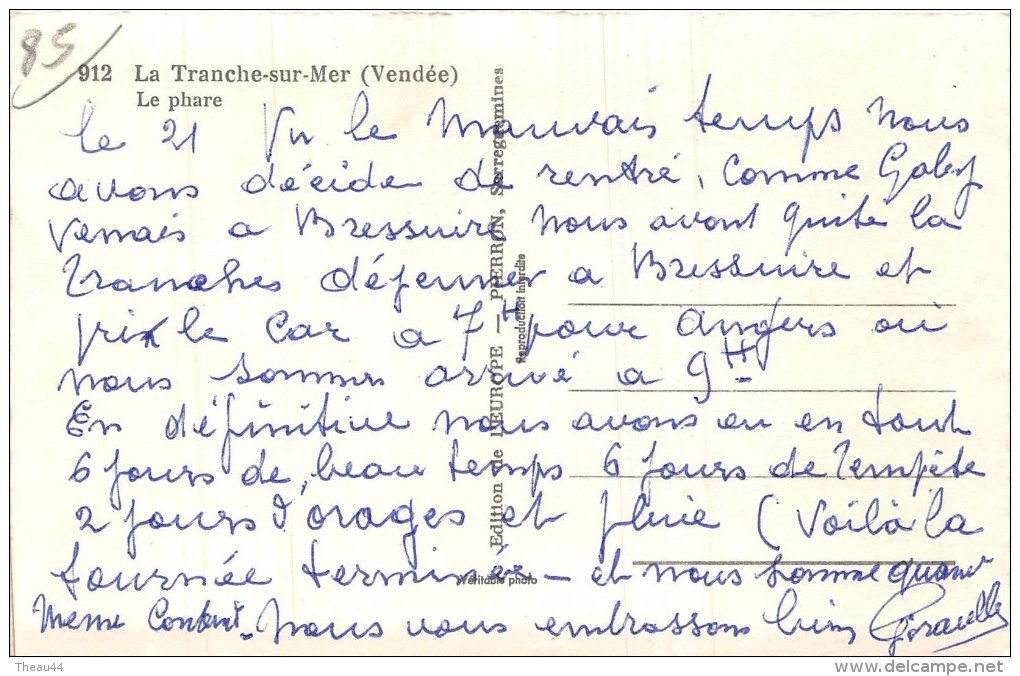 85
912 La Tranche-sur-Mer (Vendée)
Le phare
le 21 Vu le Mauvais temps Nous
avons décide de rentré, comme Gaby
Venais a Bressuire, Nous avont quité la
Tranches déjeuner a Bressuire et
pris le car a 7H pour Angers où
nous sommes arrivé a 9H
En définitive nous avons eu en tout
6 jours de beau temps 6 jours de Tempête
2 jours d'orages et pluie (Voilà la
tournée terminée - et nous somme quand
Meme Content. Nous vous embrassons bien
Edition de l'EUROPE — PIERRON, Sarreguemines
Reproduction interdite
Véritable photo
Theau44
delcampe.net